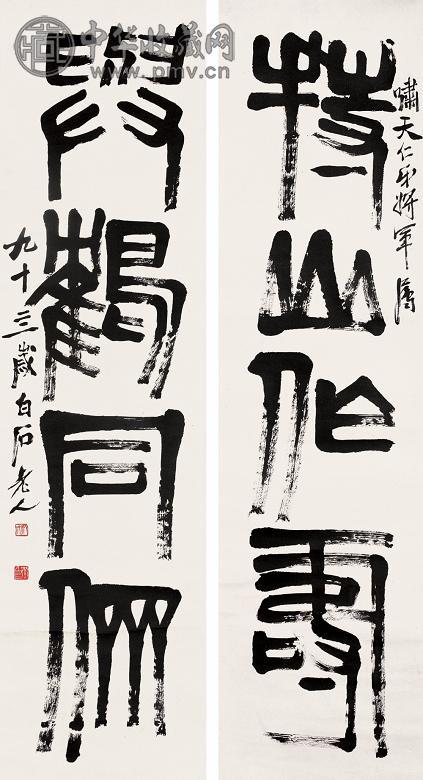 中华收藏网
www.pmv.cn
嘯天仁弟將軍
持山作壽
與鶴同儕
九十三歲白石老人